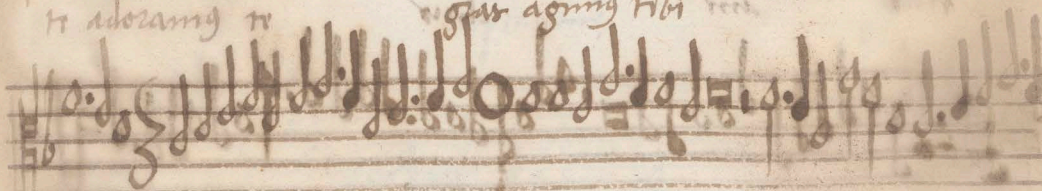 te adoramus te gras agimus tibi